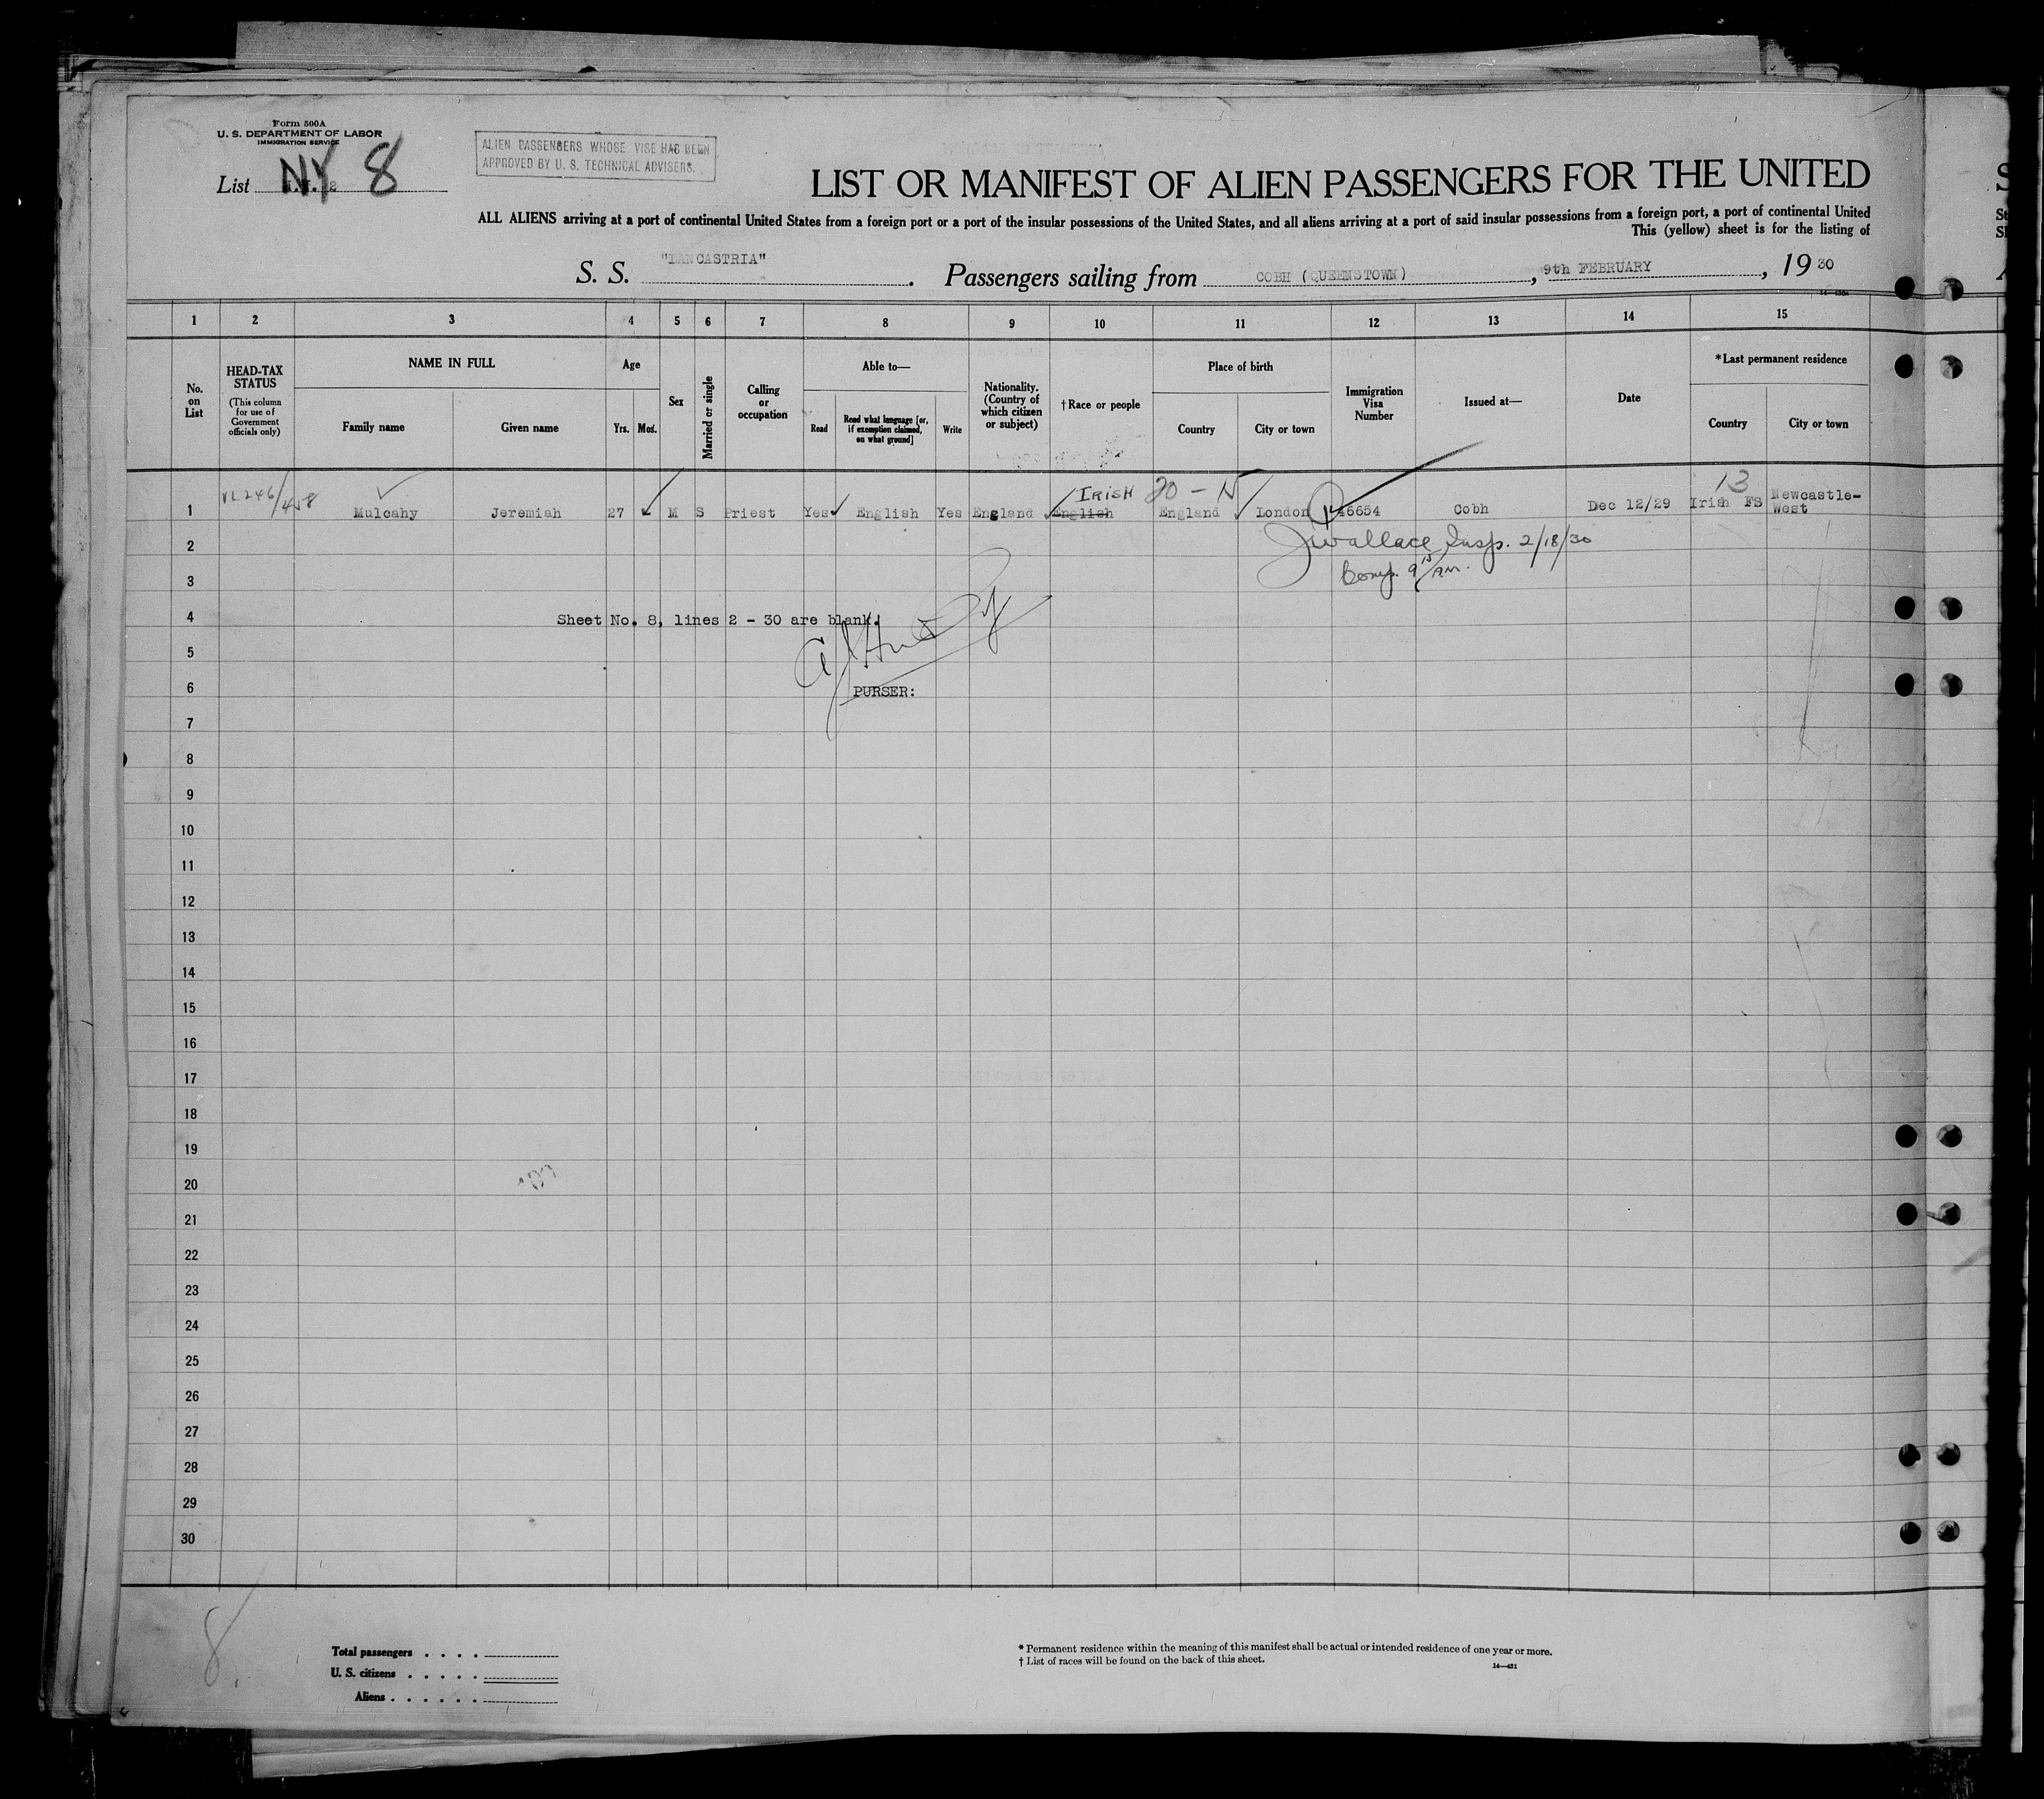 Form 500A
U. S. DEPARTMENT OF LABOR
IMMIGRATION SERVICE
List NY 8
ALIEN PASSENGERS WHOSE VISE HAS BEEN
APPROVED BY U. S. TECHNICAL ADVISERS.
LIST OR MANIFEST OF ALIEN PASSENGERS FOR THE UNITED
ALL ALIENS arriving at a port of continental United States from a foreign port or a port of the insular possessions of the United States, and all aliens arriving at a port of said insular possessions from a foreign port, a port of continental United
This (yellow) sheet is for the listing of
S. S. "LANCASTRIA". Passengers sailing from COBH (QUEENSTOWN), 9th FEBRUARY, 1930
1 2 3 4 5 6 7 8 9 10 11 12 13 14 15
No. on List
HEAD-TAX STATUS
(This column for use of Government officials only)
NAME IN FULL
Family name Given name
Age
Yrs. Mos.
Sex
Married or single
Calling or occupation
Able to—
Read
Read what language [or, if exemption claimed, on what ground]
Write
Nationality. (Country of which citizen or subject)
†Race or people
Place of birth
Country City or town
Immigration Visa Number
Issued at—
Date
*Last permanent residence
Country City or town
IRISH 13
1 Mulcahy Jeremiah 27 M S Priest Yes English Yes England English England London 46654 Cobh Dec 12/29 Irish FS Newcastle-West
2
JWallace Insp. 2/18/30
3
4 Sheet No. 8, lines 2 - 30 are blank.
5
6 PURSER:
7
8
9
10
11
12
13
14
15
16
17
18
19
20
21
22
23
24
25
26
27
28
29
30
8
Total passengers . . . .
U. S. citizens . . . . .
Aliens . . . . . .
* Permanent residence within the meaning of this manifest shall be actual or intended residence of one year or more.
† List of races will be found on the back of this sheet.
14—431